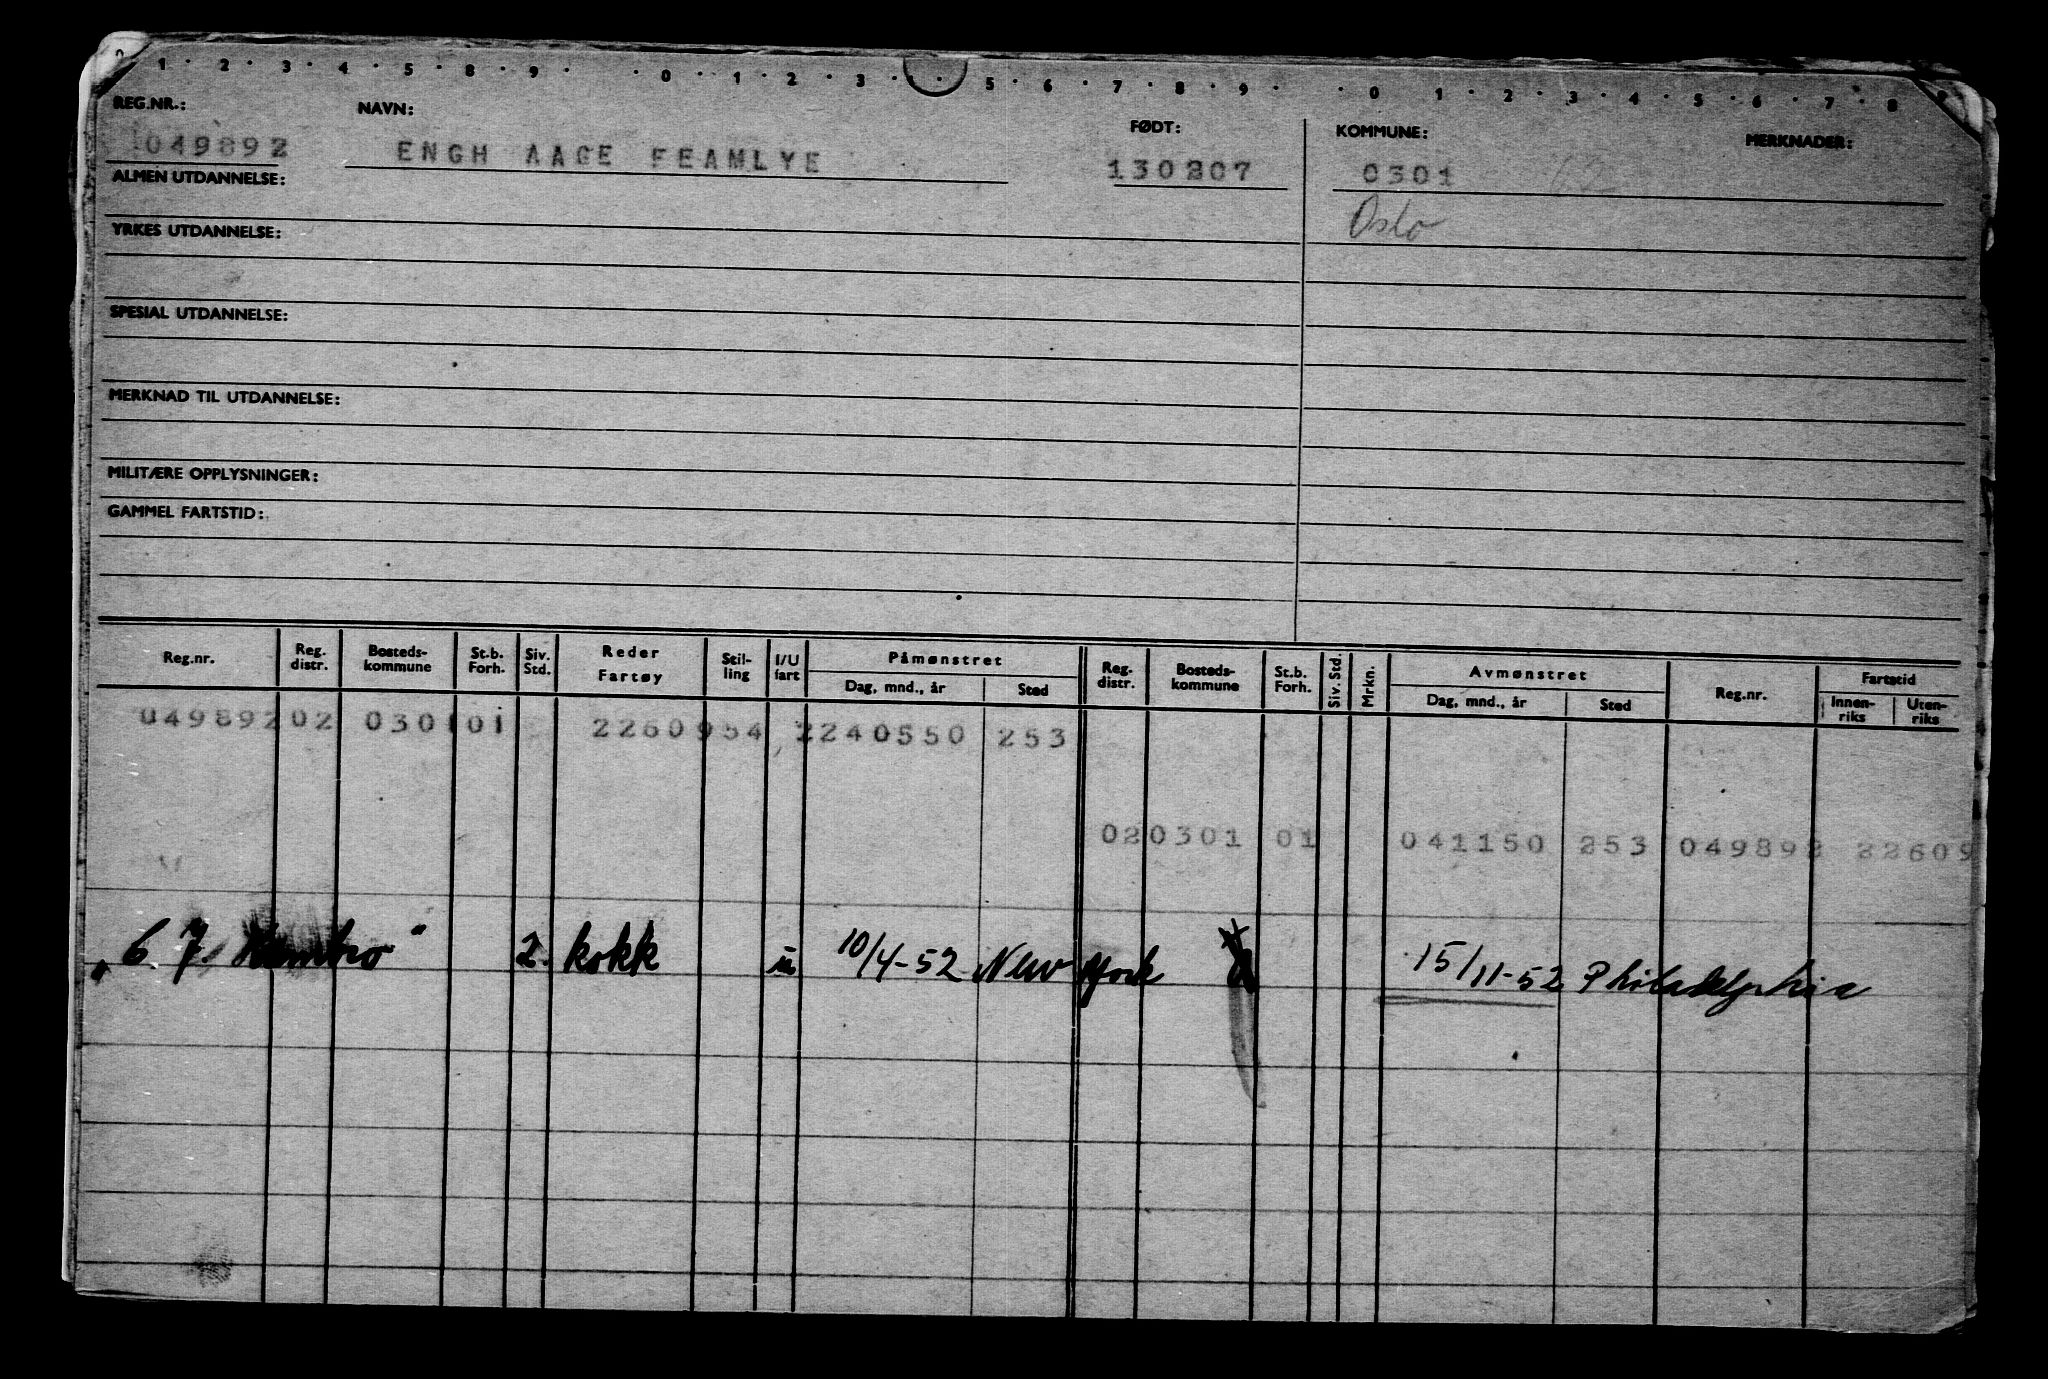 1 · 2 · 3 · 4 · 5 · 8 · 9 · · 0 · 1 · 2 · 3 · · 5 · 6 · 7 · 8 · 9 · · 0 · 1 · 2 · 3 · 4 · 5 · 6 · 7 · 8 ·
REG.NR.: NAVN: FØDT: KOMMUNE: MERKNADER:
049892 ENGH AAGE FEAMLYE 130207 0301
Oslo
ALMEN UTDANNELSE:
YRKES UTDANNELSE:
SPESIAL UTDANNELSE:
MERKNAD TIL UTDANNELSE:
MILITÆRE OPPLYSNINGER:
GAMMEL FARTSTID:
Reg.nr. Reg. distr. Bosteds-kommune St.b. Forh. Siv. Std. Reder Fartøy Stil-ling I/U fart Påmønstret Dag, mnd., år Sted Reg. distr. Bosteds-kommune St.b. Forh. Siv. Std. Mrkn. Avmønstret Dag, mnd., år Sted Reg.nr. Fartstid Innen-riks Uten-riks
049892 02 0301 01 2260954 2240550 253
02 0301 01 041150 253 049892 22609
"C. J. Hambro" 2. kokk u 10/4-52 New York 15/11-52 Philadelphia